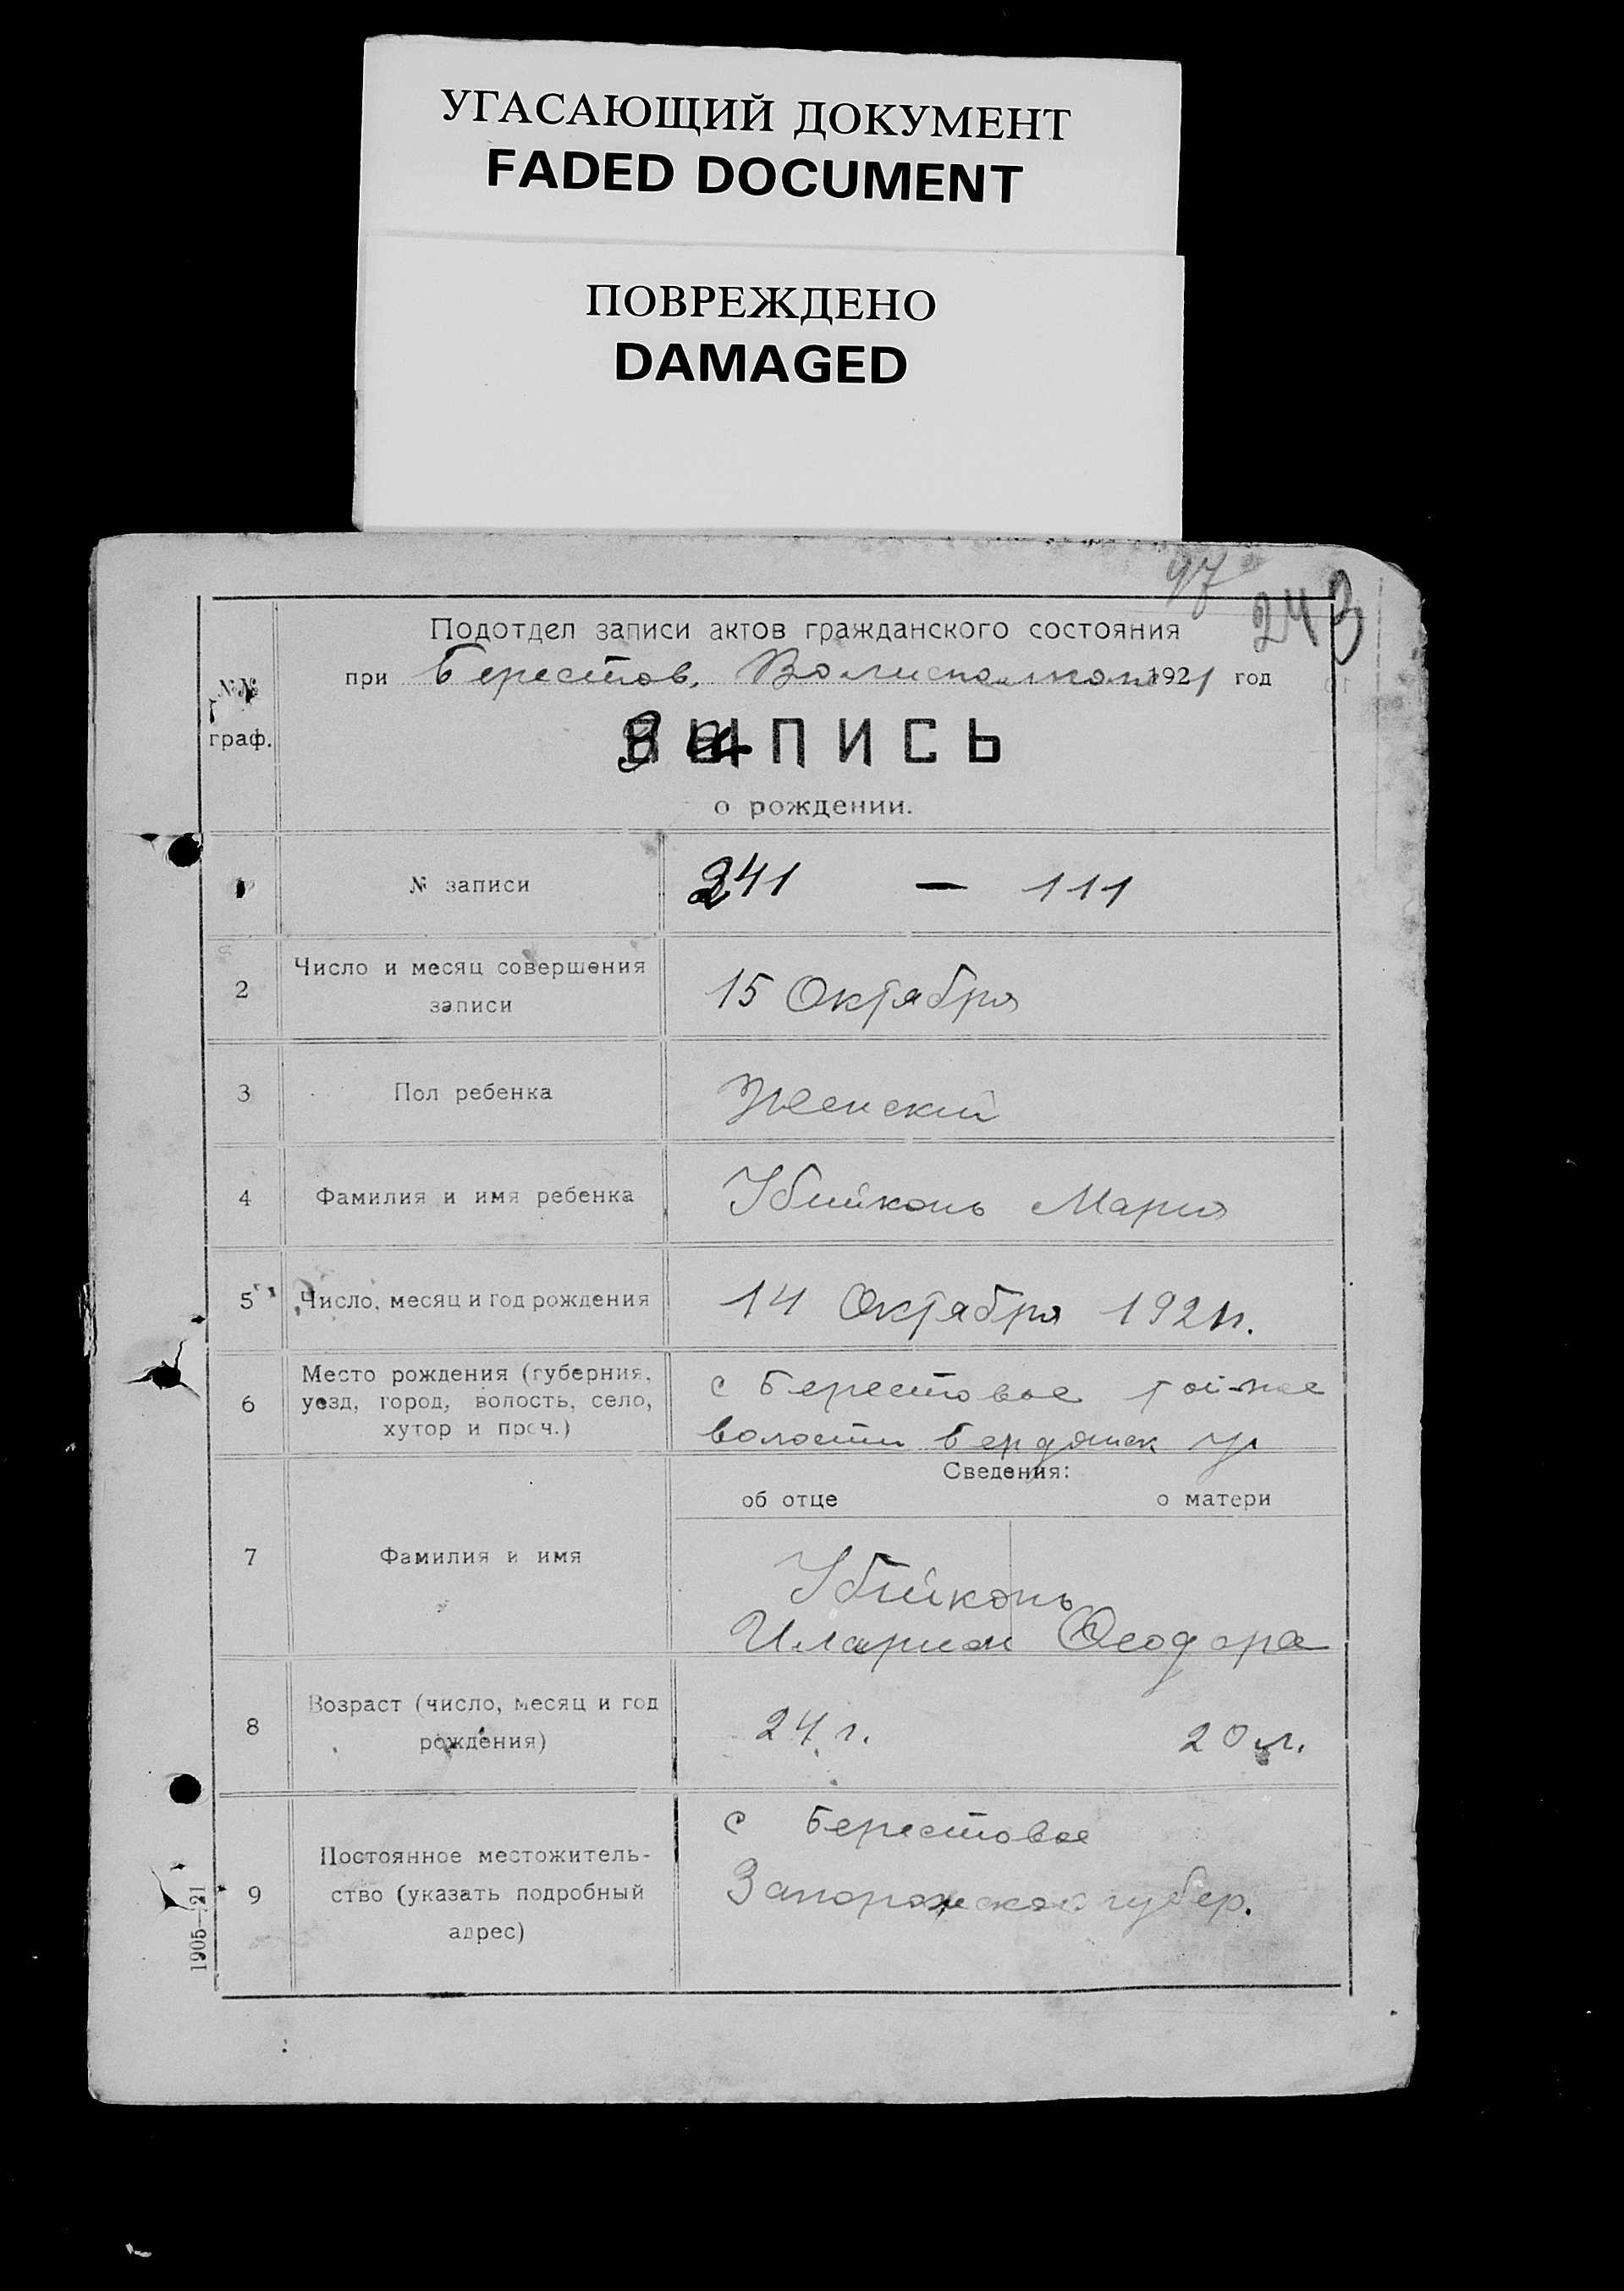 УГАСАЮЩИЙ ДОКУМЕНТ
FADED DOCUMENT
ПОВРЕЖДЕНО
DAMAGED
97
243
Подотдел записи актов гражданского состояния
при Берестов. Волисполком 1921 год
№№
граф.
ВЫПИСЬ
о рождении.
1 № записи 241 — 111
2 Число и месяц совершения
записи
15 Октября
3 Пол ребенка Женский
4 Фамилия и имя ребенка Убийконь Мария
5 Число, месяц и год рождения 14 Октября 1921г.
6 Место рождения (губерния,
уезд, город, волость, село,
хутор и проч.)
с Берестовое той-же
волости Бердянск у
Сведения:
об отце о матери
7 Фамилия и имя
Убийконь
Иларион Феодора
8 Возраст (число, месяц и год
рождения)
24 г. 20 л.
9 Постоянное местожитель-
ство (указать подробный
адрес)
с Берестовое
Запорожской губер.
1905—21